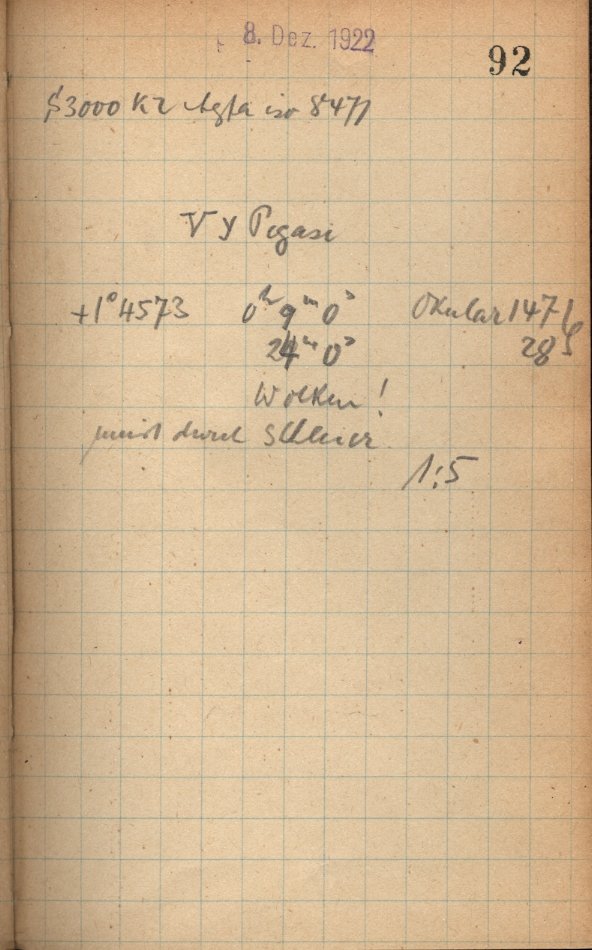 8. Dez. 1922
92
S3000 KZ Agfa iso 8477
VY Pegasi
+1°4573 0ʰ 9ᵐ 0ˢ Okular 1471
24ᵐ 0ˢ 28
Wolken!
meist durch Schleier
1:5